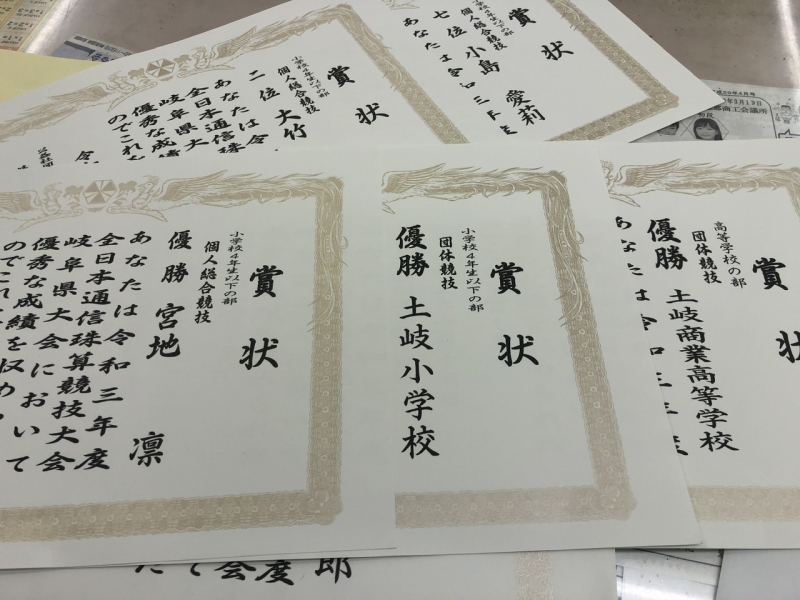 賞状
小学校4年生以下の部
個人総合競技
七位 小島 愛莉
あなたは令和三年
賞状
小学校4年生以下の部
個人総合競技
二位 大竹
あなたは令
全日本通信珠
岐阜県大
優秀な成績
のでこれ
賞状
小学校4年生以下の部
個人総合競技
優勝 宮地 凛
あなたは令和三年度
全日本通信珠算競技大会
岐阜県大会において
優秀な成績を収め
のでこれ
賞状
小学校4年生以下の部
団体競技
優勝 土岐小学校
賞状
高等学校の部
団体競技
優勝 土岐商業高等学校
あなたは令和三年度
商工会議所